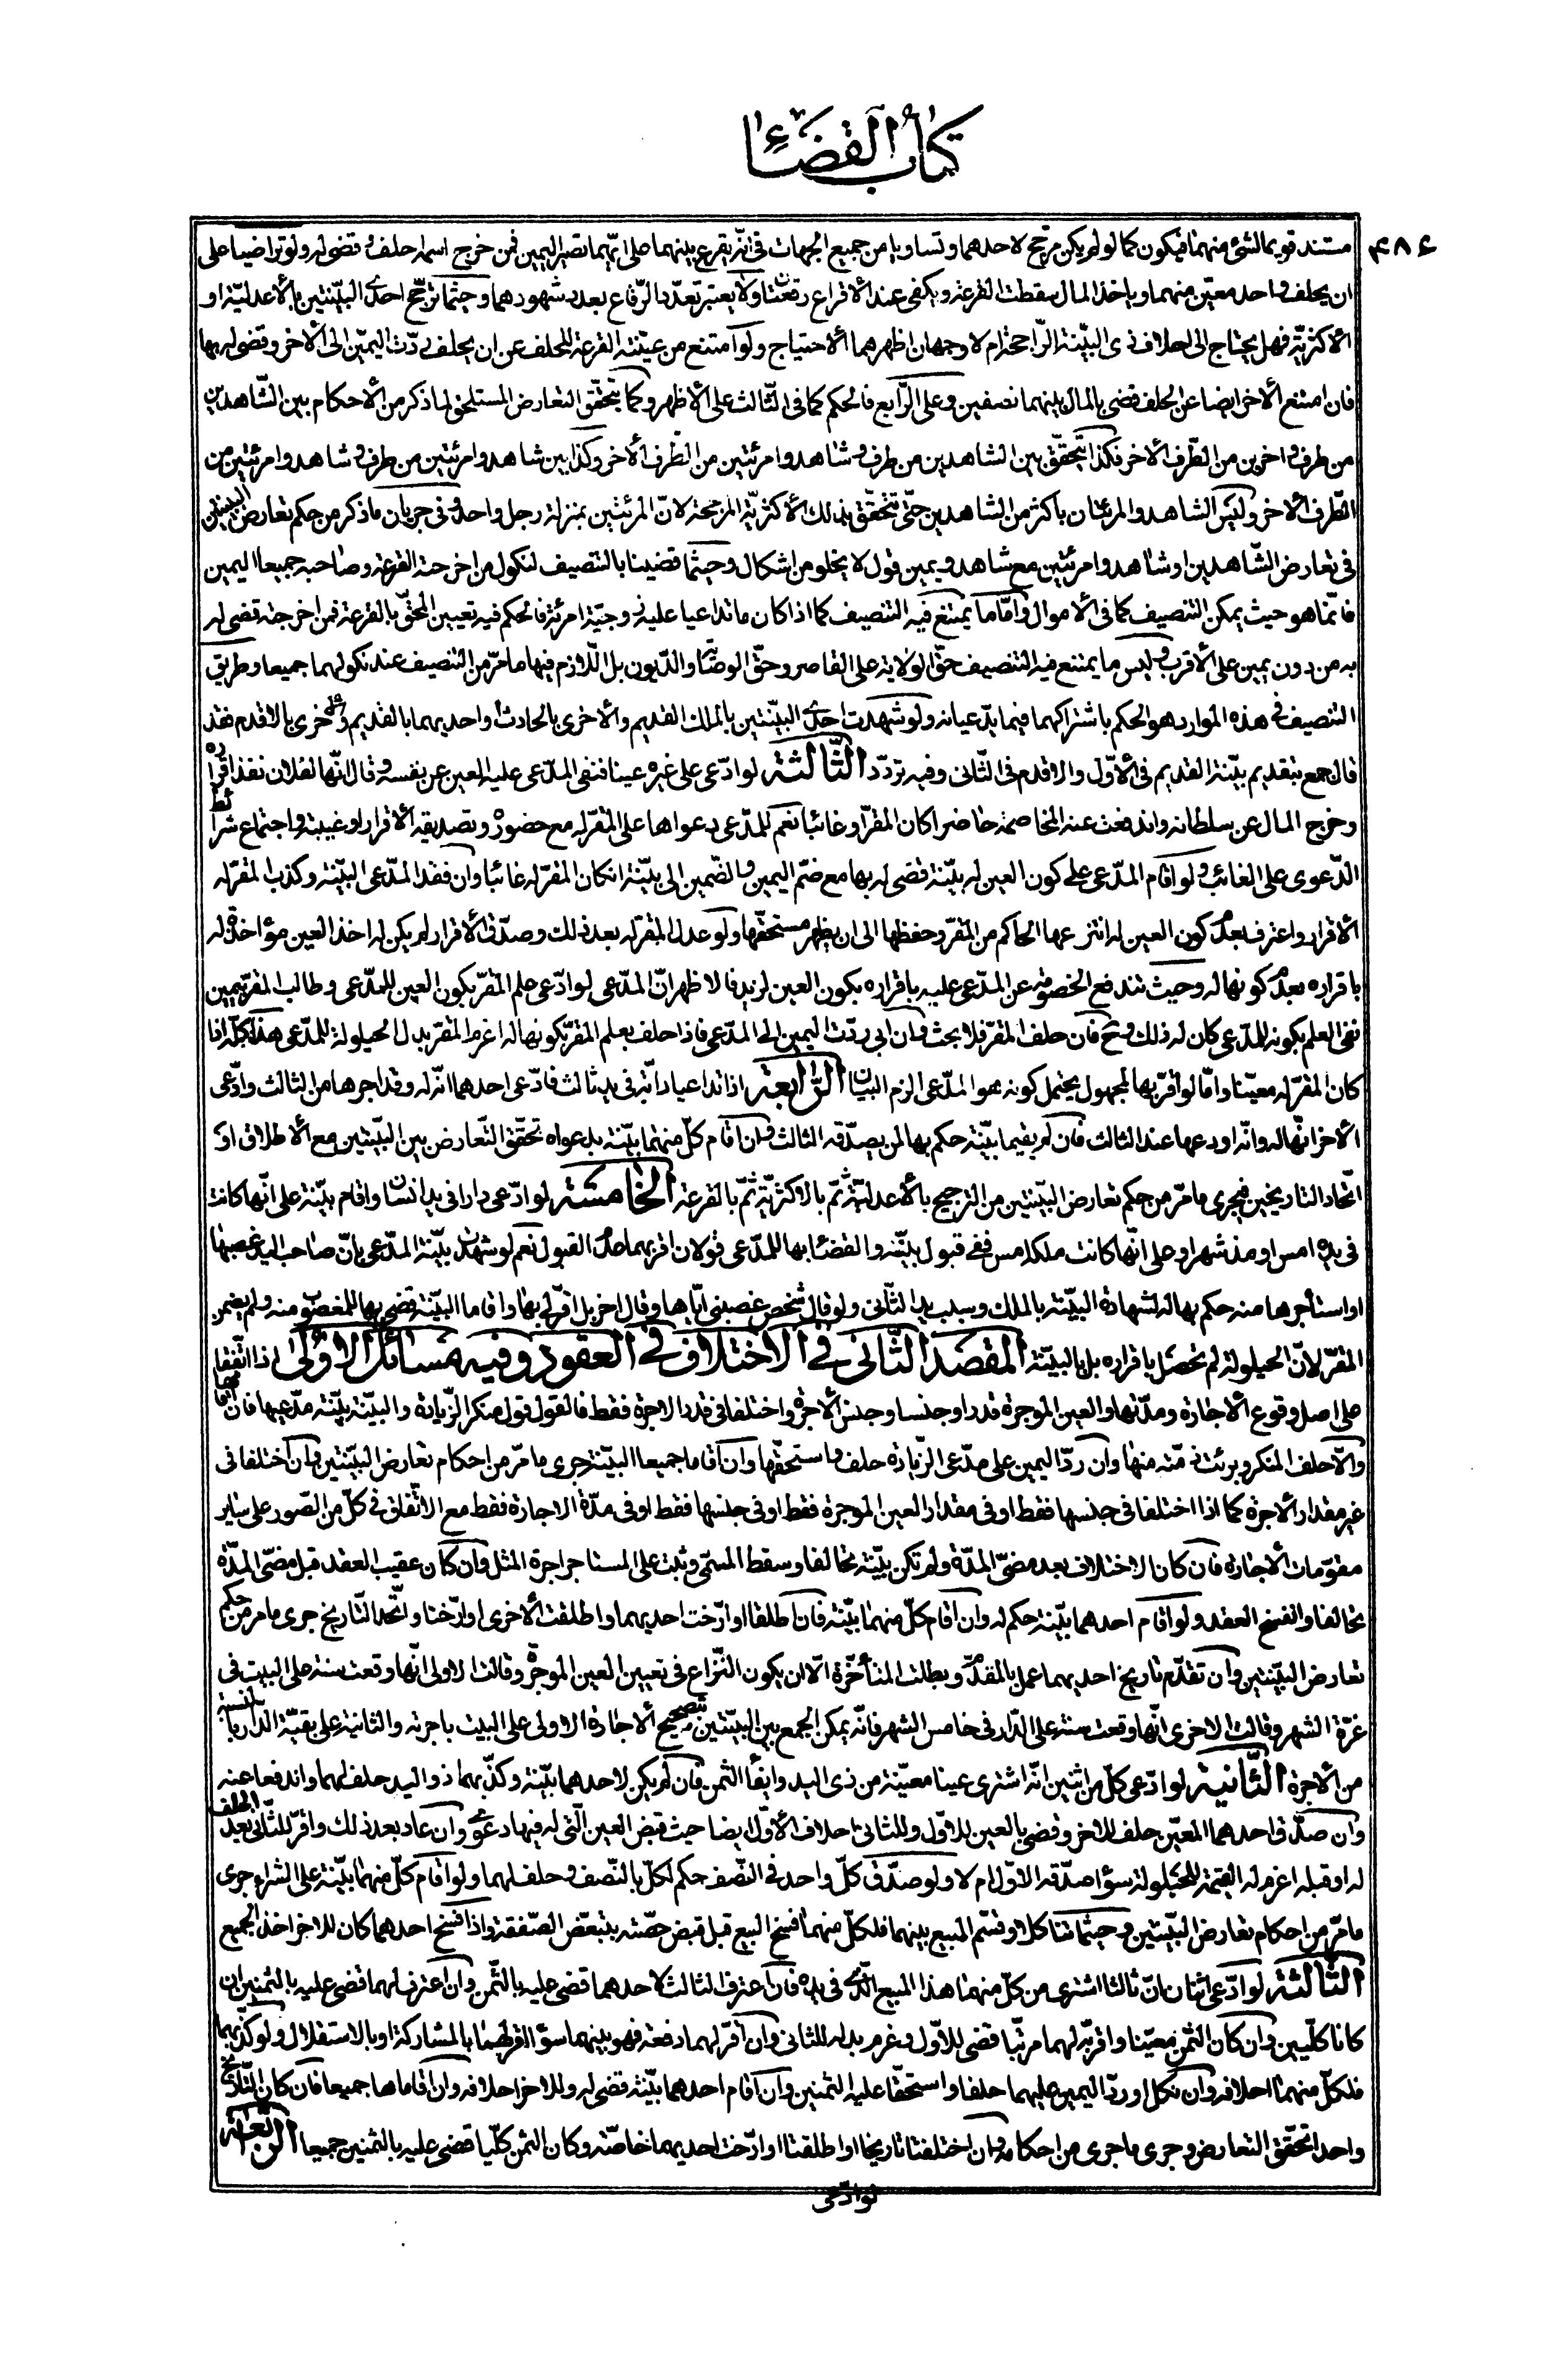 كتاب القضاء
۴۸۶
مستند قويم الشئ منهما فيكون كما لو لم يكن مرجح لاحدهما وتساويا من جميع الجهات فى انّه يقرع بينهما على ايّهما تصير اليمين فمن خرج اسمه حلف وقضى له ولو تراضيا على
ان يحلف واحد معيّن منهما وياخذ المال سقطت القرعة ويكفى عند الاقراع رقعتان ولا يعتبر تعدّد الرّقاع بعدد شهودهما وحيثما ترجّح احدى البيّنتين بالأعدليّة او
الأكثريّة فهل يحتاج الى احلاف ذى البيّنة الرّاجحة ام لا وجهان اظهرهما الأحتياج ولو امتنع من عيّنته القرعة للحلف عن ان يحلف ردّت اليمين الى الأخر وقضى له بها
فان امتنع الأخر ايضا عن الحلف قضى بالمال بينهما نصفين وعلى الرّابع فالحكم كما فى الثّالث على الأظهر وكما يتحقّق التعارض المستلحق لما ذكر من الأحكام بين الشّاهدين
من طرف واخرين من الطّرف الأخر فكذا يتحقّق بين الشاهدين من طرف وشاهد وامرئتين من الطّرف الأخر وكذا بين شاهد وامرئتين من طرف وشاهد وامرئتين من
الطّرف الأخر وليس الشاهد والمرئتان باكثر من الشاهدين حتّى تتحقّق بذلك الأكثريّة المرجحة لانّ المرئتين بمنزلة رجل واحد وفى جريان ما ذكر من حكم تعارض البينتين
فى تعارض الشّاهدين او شاهد وامرئتين مع شاهد ويمين قول لا يخلو من اشكال وحيثما قضينا بالتنصيف لنكول من اخرجته القرعة وصاحبه جميعا اليمين
فانّما هو حيث يمكن التنصيف كما فى الأموال وامّا ما يمتنع فيه التنصيف كما اذا كان ما تداعيا عليه زوجيّة امرئة فالحكم فيه تعيين المحقّ بالقرعة فمن اخرجته قضى له
به من دون يمين على الأقرب وليس ما يمتنع فيه التنصيف حقّ الولاية على القاصر وحقّ الوصاية والدّيون بل اللّازم فيها ما مرّ من التنصيف عند نكولهما جميعا وطريق
التنصيف فى هذه الموارد هو الحكم باشتراكهما فيما يدّعيانه ولو شهدت احدى البيّنتين بالملك القديم والأخرى بالحادث او احديهما بالقديم والاخرى بالاقدم فقد
قال جمع بتقديم بيّنة القديم فى الأوّل والاقدم فى الثّانى وفيه تردّد الثّالثة لو ادّعى على غيره عينا فنفى المدّعى عليه العين عن نفسه وقال انّها لفلان نفذ اقراره
وخرج المال عن سلطانه واندفعت عنه المخاصمة حاضرا كان المقرّ او غائبا نعم للمدّعى دعواها على المقرّ له مع حضوره وتصديقه الأقرار او غيبته واجتماع شرائط
الدّعوى على الغائب ولو اقام المدّعى على كون العين له بيّنة قضى له بها مع ضمّ اليمين والضّمين الى بيّنته انكان المقرّ له غائبا وان فقد المدّعى البيّنة وكذب المقرّ له
الأقرار واعترف بعدم كون العين له انتزعها الحاكم من المقرّ وحفظها الى ان يظهر مستحقّها ولو عدل المقرّ له بعد ذلك وصدّق الأقرار لم يكن له اخذ العين مؤاخذة له
باقراره بعدم كونها له وحيث تندفع الخصومة عن المدّعى عليه باقراره بكون العين لزيد فالاظهر انّ المدّعى لو ادّعى علم المقرّ بكون العين للمدّعى وطالب المقرّ بيمين
نفى العلم بكونه للمدّعى كان له ذلك وح فان حلف المقرّ فلا بحث وان ابى ردّت اليمين الى المدّعى فاذا حلف بعلم المقرّ بكونها له اغرم المقرّ بدل الحيلولة للمدّعى هذا كلّه اذا
كان المقرّ له معيّنا وامّا لو اقرّ بها لمجهول يحتمل كونه هو المدّعى الزم البيان الرّابعة اذا تداعيا دابّة فى يد ثالث فادّعى احدهما انّه له وقد اجرها من الثالث وادّعى
الأخر انّها له وانّه اودعها عند الثالث فان لم يقيما بيّنة حكم بها لمن يصدّقه الثالث وان اقام كلّ منهما بيّنة بدعواه تحقّق التّعارض بين البيّنتين مع الأطلاق او
اتّحاد التاريخين فيجرى ما مرّ من حكم تعارض البيّنتين من الترجيح بالأعدليّة ثمّ بالاكثريّة ثمّ بالقرعة الخامسة لو ادّعى دارا فى يد انسان واقام بيّنة على انّها كانت
فى يده امس او منذ شهر او على انّها كانت ملكه امس ففى قبول بيّنته والقضاء بها للمدّعى قولان اقربهما عدم القبول نعم لو شهدت بيّنة المدّعى بانّ صاحب اليد غصبها
او استأجرها منه حكم بها له لشهادة البيّنة بالملك وسبب يد الثّانى ولو قال شخص غصبنى ايّاها وقال اخر بل اقرّ لى بها واقاما البيّنة قضى بها للمغصوب منه ولم يضمن
المقرّ لانّ الحيلولة لم تحصل باقراره بل بالبيّنة المقصد الثّانى فى الاختلاف فى العقود وفيه مسائل الاولى اذا اتّفقا
على اصل وقوع الأجارة ومدّتها والعين الموجرة قدرا وجنسا وجنس الأجرة واختلفا فى قدر الاجرة فقط فالقول قول منكر الزّيادة والبيّنة بيّنة مدّعيها فان اقامها
والّا حلف المنكر وبرئت ذمّته منها وان ردّ اليمين على مدّعى الزّيادة حلف واستحقّها وان اقاما جميعا البيّنة جرى ما مرّ من احكام تعارض البيّنتين وان اختلفا فى
غير مقدار الأجرة كما اذا اختلفا فى جنسها فقط او فى مقدار العين الموجرة فقط او فى جنسها فقط او فى مدّة الاجارة فقط مع الاتّفاق فى كلّ من الصّور على ساير
مقوّمات الأجارة فان كان الاختلاف بعد مضىّ المدّة ولم تكن بيّنة تحالفا وسقط المسمّى وثبت على المستاجر اجرة المثل وان كان عقيب العقد قبل مضىّ المدّة
تحالفا وانفسخ العقد ولو اقام احدهما بيّنة حكم له وان اقام كلّ منهما بيّنة فان اطلقا او ارّخت احديهما واطلقت الأخرى او ارّختا واتّحد التّاريخ جرى ما مر من حكم
تعارض البيّنتين وان تقدّم تاريخ احديهما عمل بالمقدّم وبطلت المتأخّرة الّا ان يكون النّزاع فى تعيين العين الموجرة وقالت الاولى انّها وقعت سنة على البيت فى
غرّة الشهر وقالت الاخرى انّها وقعت سنة على الدّار فى خامس الشهر فانّه يمكن الجمع بين البيّنتين بتصحيح الأجارة الاولى على البيت باجرته والثانية على بقيّة الدّار بالنسبة
من الأجرة الثّانية لو ادّعى كلّ من اثنين انّه اشترى عينا معيّنة من ذى اليد وايفاء الثمن فان لم يكن لاحدهما بيّنة وكذّبهما ذو اليد حلف لهما واندفعا عنه
وان صدّق احدهما المعيّن حلف للاخر وقضى بالعين للاوّل وللثانى احلاف الأوّل ايضا حيث قبض العين الّتى له فيها دعوى وان عاد بعد ذلك واقرّ للثّانى بعد الحلف
له او قبله اغرم له القيمة للحيلولة سواء صدّقه الاوّل ام لا ولو صدّق كلّ واحد فى النّصف حكم لكلّ بالنّصف وحلف لهما ولو اقام كلّ منهما بيّنة على الشراء جرى
ما مرّ من احكام تعارض البيّنتين وحيثما تناكلا وقسّم المبيع بينهما فلكلّ منهما فسخ البيع قبل قبض حصّته بتبعّض الصّفقة واذا فسخ احدهما كان للاخر اخذ الجميع
الثّالثة لو ادّعى اثنان انّ ثالثا اشترى من كلّ منهما هذا المبيع الّذى فى يده فان اعترف الثالث لاحدهما قضى عليه بالثّمن وان اعترف لهما قضى عليه بالثمنين ان
كانا كلّيين وان كان الثمن معيّنا واقرّ به لهما مرتّبا قضى للاوّل وغرم بدله للثانى وان اقرّ لهما دفعة فهو بينهما سواء اقر لهما بالمشاركة او بالاستقلال ولو كذّبهما
فلكلّ منهما احلافه وان نكل او ردّ اليمين عليهما حلفا واستحقّا عليه الثمنين وان اقام احدهما بيّنة قضى له وللاخر احلافه وان اقاماها جميعا فان كان التّاريخ
واحدا تحقّق التعارض وجرى ما جرى من احكامه وان اختلفتا تاريخا او اطلقتا او ارّخت احديهما خاصّة وكان الثمن كلّيا قضى عليه بالثمنين جميعا الرّابعة
لو ادّعى